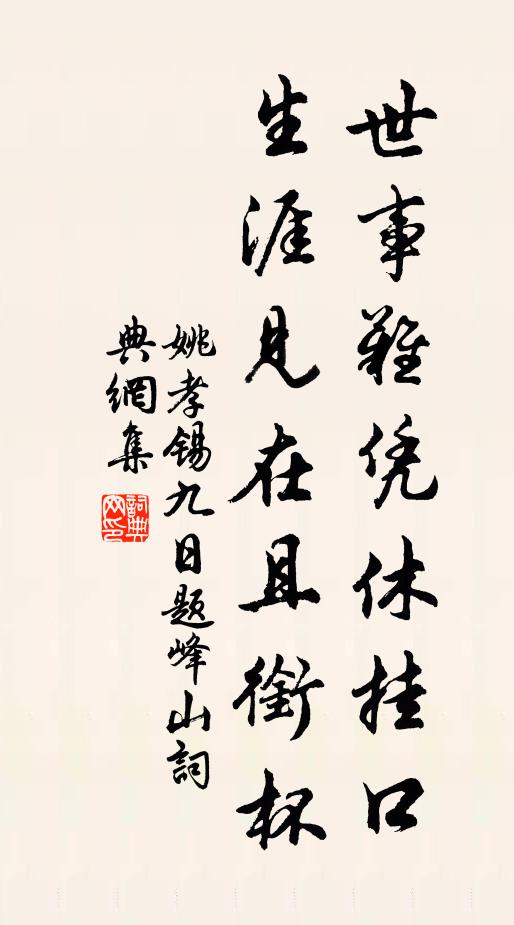 世事難凭休挂口
生涯見在且銜杯
姚孝錫九日題峰山詞
典網集
詞典
网印